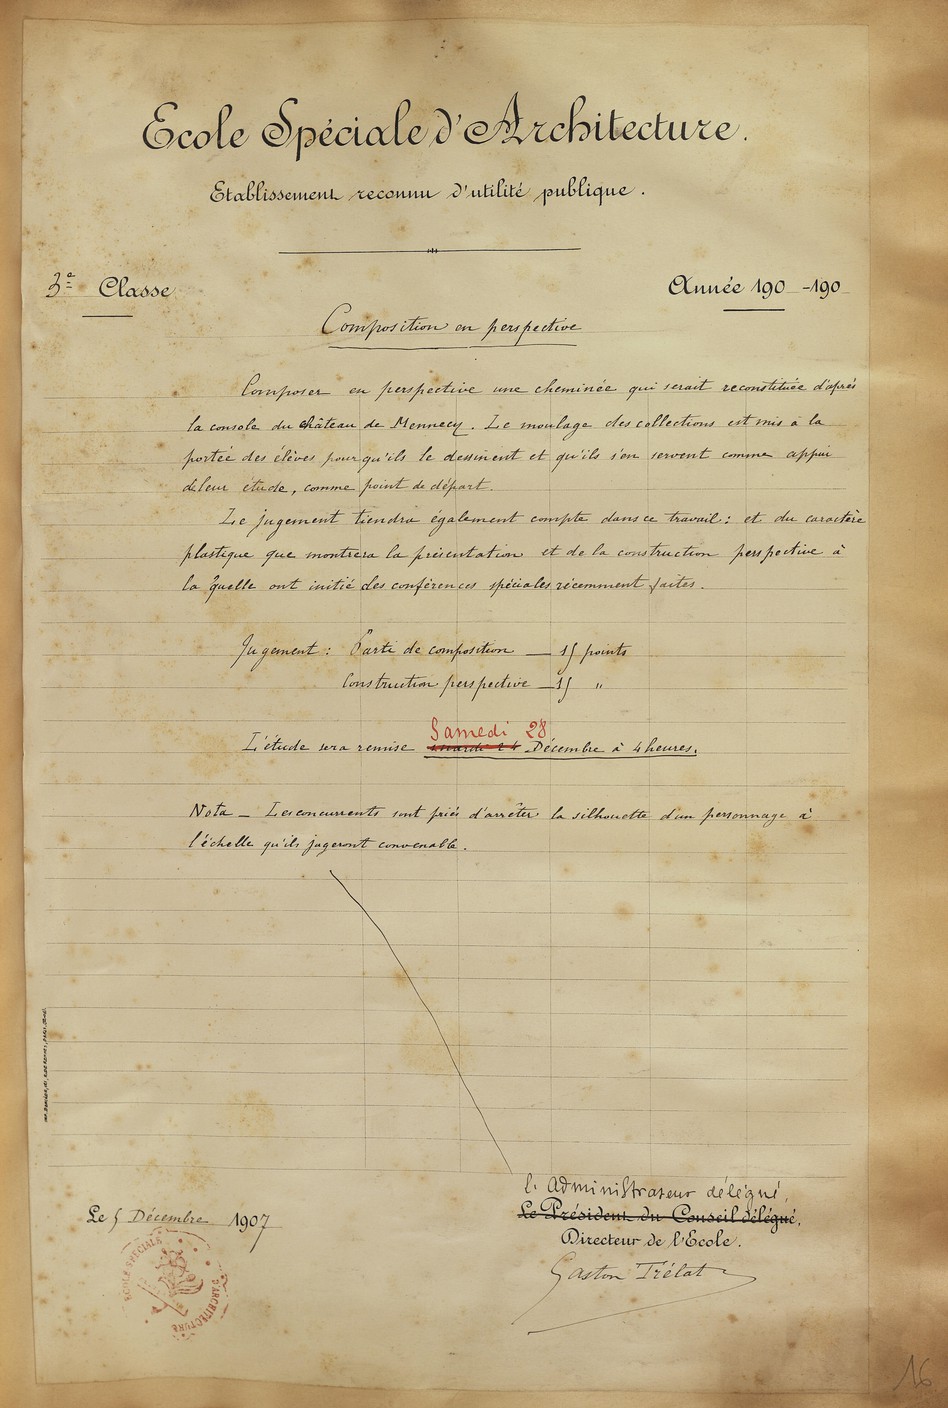 Ecole Spéciale d'Architecture.
Etablissement reconnu d'utilité publique.
3e Classe
Année 190 -190
Composition en perspective
Composer en perspective une cheminée qui serait reconstituée d'après
la console du château de Mennecy. Le moulage des collections est mis à la
portée des élèves pour qu'ils le dessinent et qu'ils s'en servent comme appui
de leur étude, comme point de départ.
Le jugement tiendra également compte dans ce travail : et du caractère
plastique que montrera la présentation et de la construction perspective à
la quelle ont initié des conférences spéciales récemment faites.
Jugement : Parti de composition — 15 points
Construction perspective — 15 "
Samedi 28
L'étude sera remise mardi 24 Décembre à 4 heures.
Nota — Les concurrents sont priés d'arrêter la silhouette d'un personnage à
l'échelle qu'ils jugeront convenable.
l'Administrateur délégué,
Le Président du Conseil délégué,
Directeur de l'Ecole.
Le 5 Décembre 1907
Gaston Trélat
ECOLE SPECIALE D'ARCHITECTURE
16